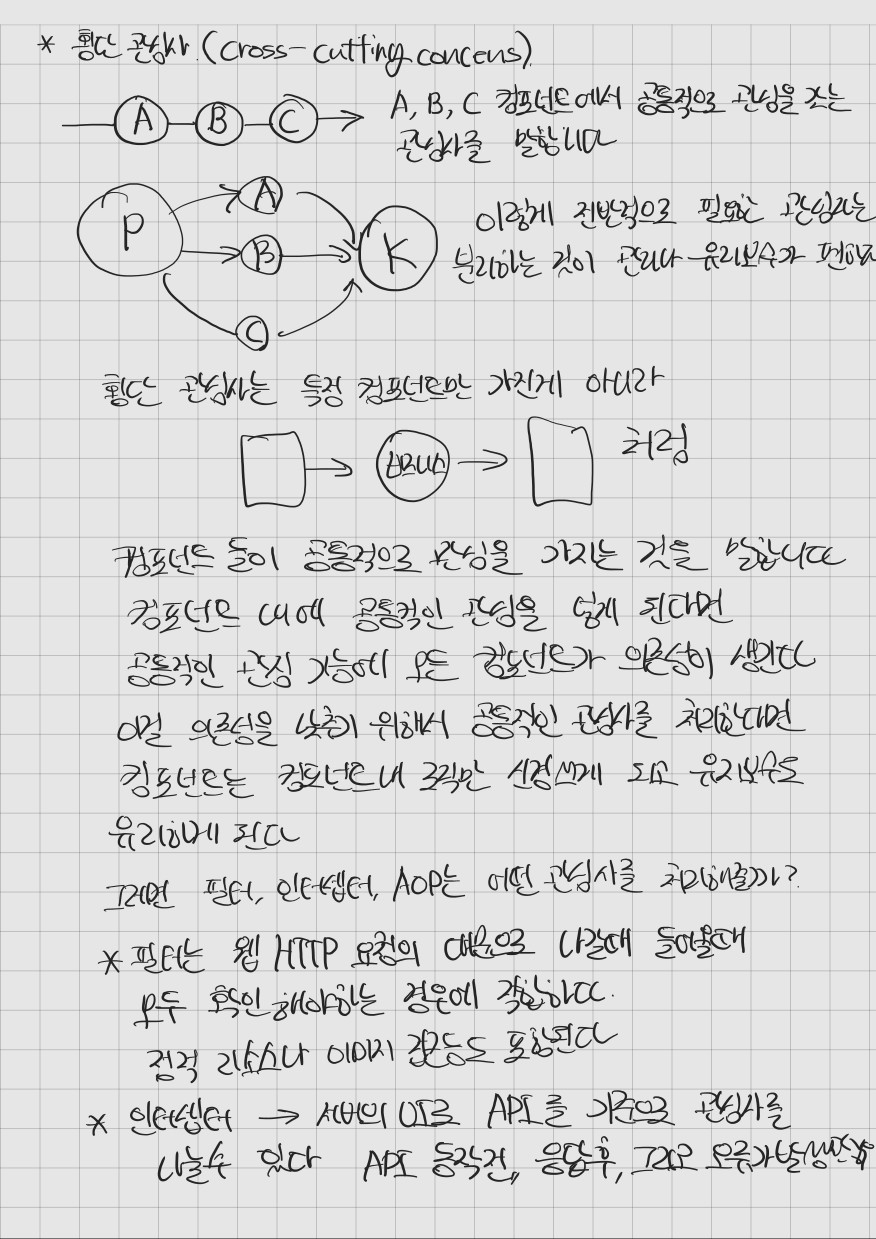 * 횡단 관심사 (cross-cutting concens)
A B C
A, B, C 컴포넌트에서 공통적으로 관심을 갖는
관심사를 말합니다
P A B C K
이렇게 전반적으로 필요한 관심사는
분리하는 것이 관리나 유지보수가 편하고
횡단 관심사는 특정 컴포넌트만 가진게 아니라
비즈니스
처럼
컴포넌트 들이 공통적으로 관심을 가지는 것을 말합니다
컴포넌트 내에 공통적인 관심을 넣게 된다면
공통적인 관심 기능에 모든 컴포넌트가 의존성이 생긴다
이걸 의존성을 낮추기 위해서 공통적인 관심사를 처리한다면
컴포넌트는 컴포넌트 내 로직만 신경쓰게 되고 유지보수도
유리하게 된다
그러면 필터, 인터셉터, AOP는 어떤 관심사를 처리해줄까?
* 필터는 웹 HTTP 요청의 대문으로 나갈때 들어올때
모두 확인해야하는 경우에 적합하다.
정적 리소스나 이미지 같은 등도 포함된다
* 인터셉터 → 서버의 URL API를 기준으로 관심사를
나눌수 있다 API 동작전, 응답후, 그리고 오류가 발생